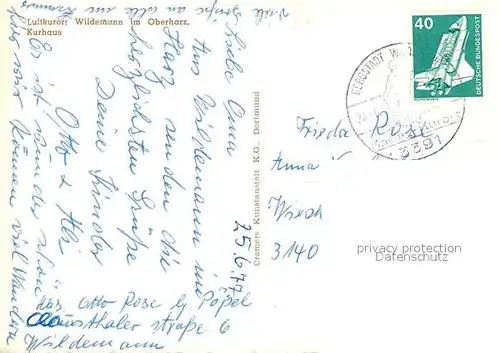 Luftkurort Wildemann im Oberharz.
Kurhaus
Viele Grüße an alle
Liebe Oma
Aus Wildemann im
Harz senden die
herzlichsten Grüße
Deine Kinder
Otto &
Es ist wunder schön
hier wir können viel Wandern
25.6.77
Abs. Otto Rose bei Pöpel
Clausthaler straße 6
Wildemann
Cramers Kunstanstalt K.G., Dortmund
BERGSTADT
3391
40
DEUTSCHE BUNDESPOST
Frieda Rose
Anna
3140
privacy protection
watermark